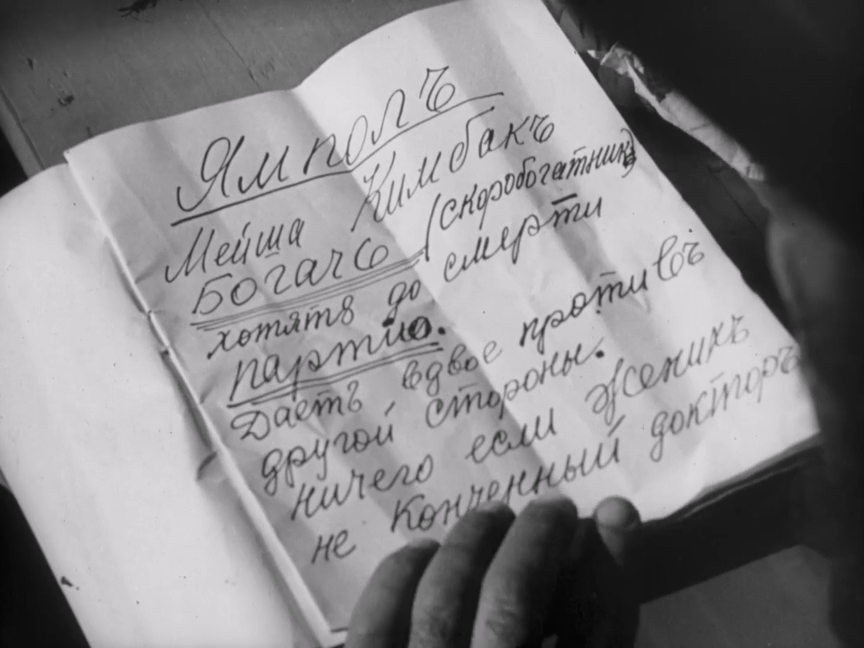 Ямполъ
Мейша Кимбакъ
Богачъ (скоробогатчикъ)
хотятъ до смерти
партію.
Даетъ вдвое противъ
другой стороны.
ничего если женихъ
не конченный докторъ